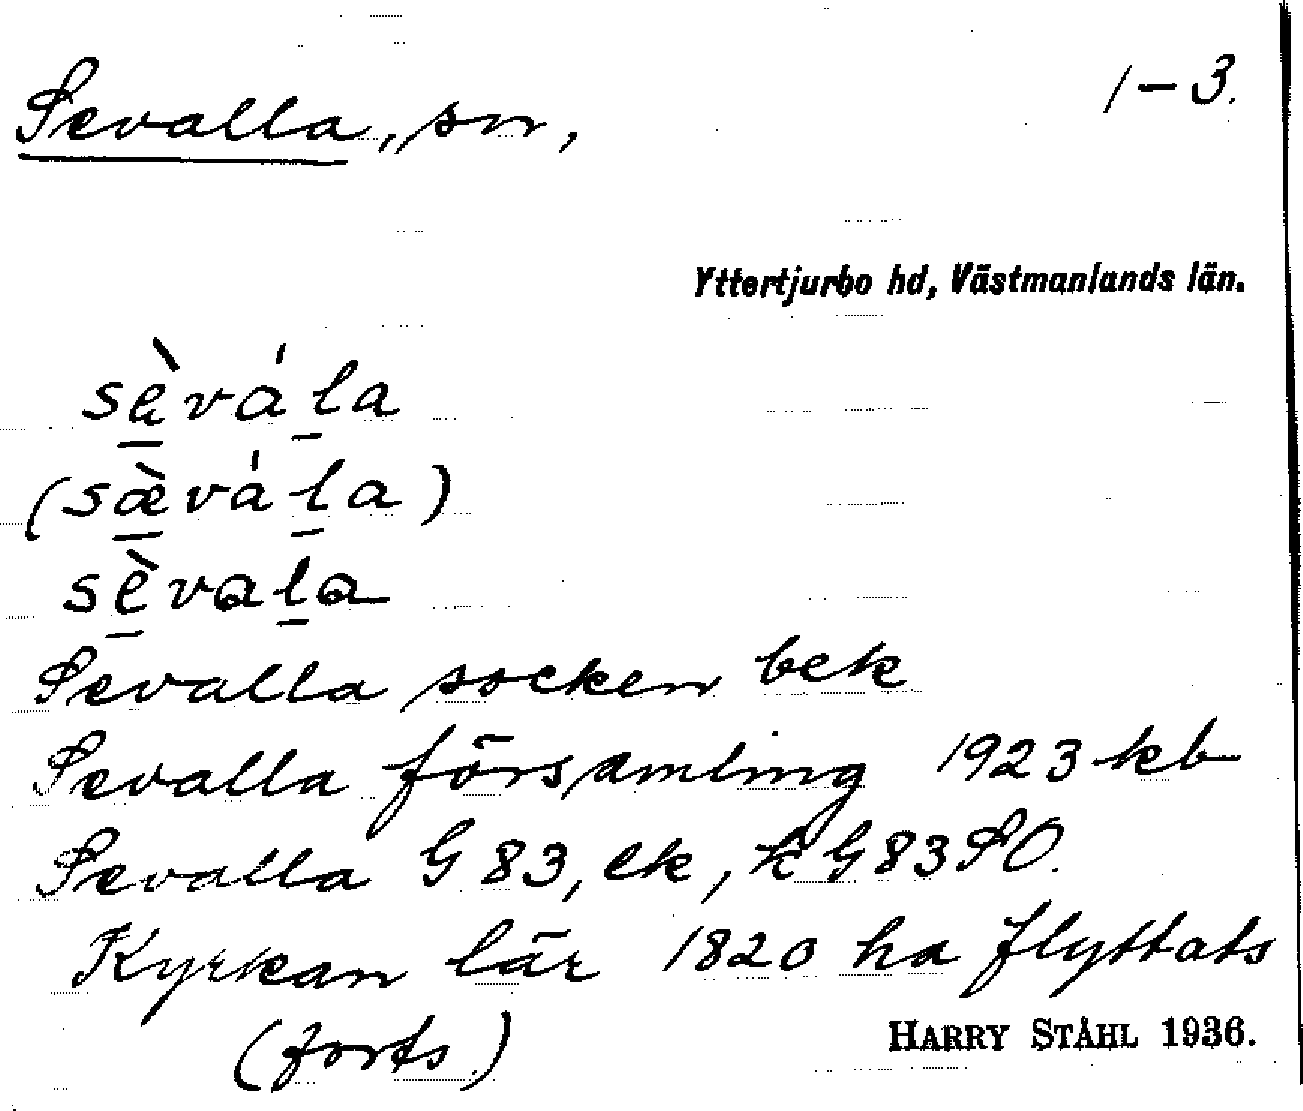 Sevalla, sn,
1-3.
Yttertjurbo hd, Västmanlands län.
sè̱váḻa
(sæ̱̀váḻa)
sè̱vaḻa
Sevalla socken bek
Sevalla församling 1923 kb
Sevalla G 83, ek, k G 83 SO.
Kyrkan lär 1820 ha flyttats
(forts)
HARRY STÅHL 1936.